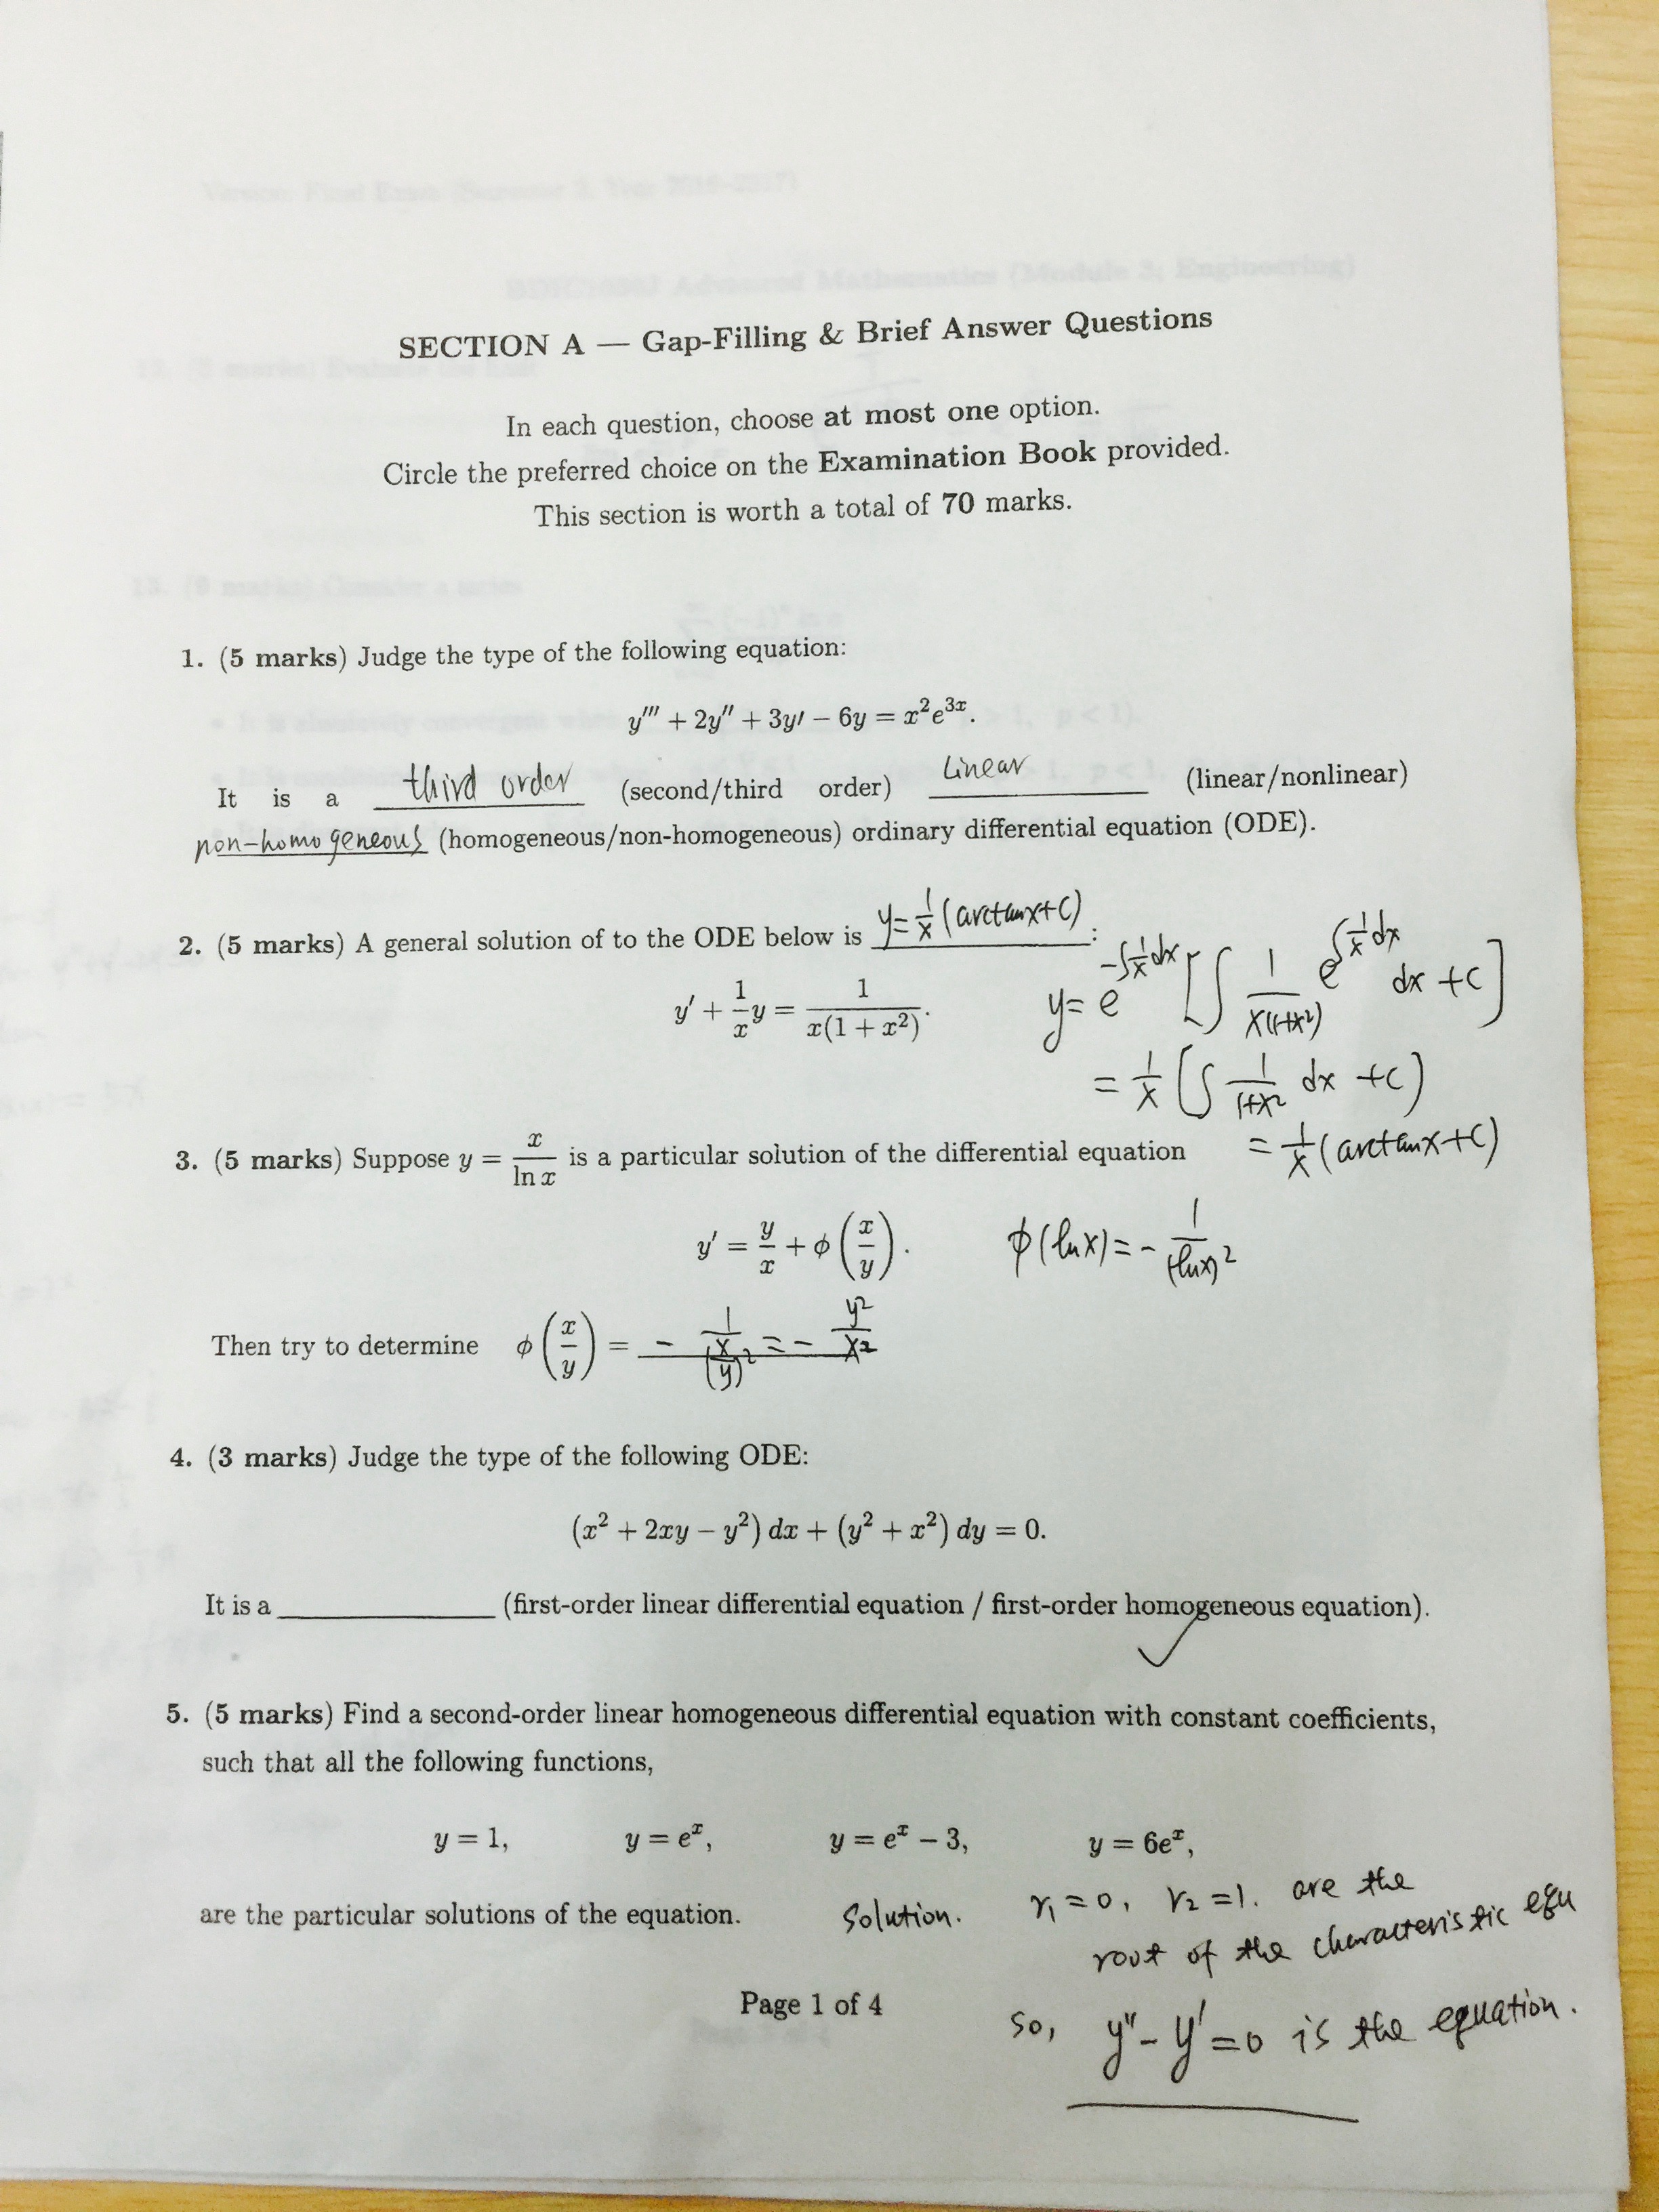 SECTION A — Gap-Filling & Brief Answer Questions
In each question, choose at most one option.
Circle the preferred choice on the Examination Book provided.
This section is worth a total of 70 marks.
1. (5 marks) Judge the type of the following equation:
y''' + 2y'' + 3y′ − 6y = x²e³ˣ.
It is a third order (second/third order) Linear (linear/nonlinear)
non-homogeneous (homogeneous/non-homogeneous) ordinary differential equation (ODE).
2. (5 marks) A general solution of to the ODE below is y = 1/x (arctanx+C) :
y' + 1/x y = 1/(x(1 + x²)).
y = e^(-∫1/x dx) [∫ 1/(x(1+x²)) e^(∫1/x dx) dx + C]
= 1/x (∫ 1/(1+x²) dx + C)
= 1/x (arctanx+C)
3. (5 marks) Suppose y = x/ln x is a particular solution of the differential equation
y' = y/x + ϕ(x/y).
ϕ(lnx) = - 1/(lnx)²
Then try to determine ϕ(x/y) = - 1/(x/y)² = - y²/x²
4. (3 marks) Judge the type of the following ODE:
(x² + 2xy − y²) dx + (y² + x²) dy = 0.
It is a ____________ (first-order linear differential equation / first-order homogeneous equation).
✓
5. (5 marks) Find a second-order linear homogeneous differential equation with constant coefficients,
such that all the following functions,
y = 1, y = eˣ, y = eˣ − 3, y = 6eˣ,
are the particular solutions of the equation.
Solution. r₁ = 0, r₂ = 1. are the
root of the characteristic equ
so, y'' - y' = 0 is the equation.
Page 1 of 4